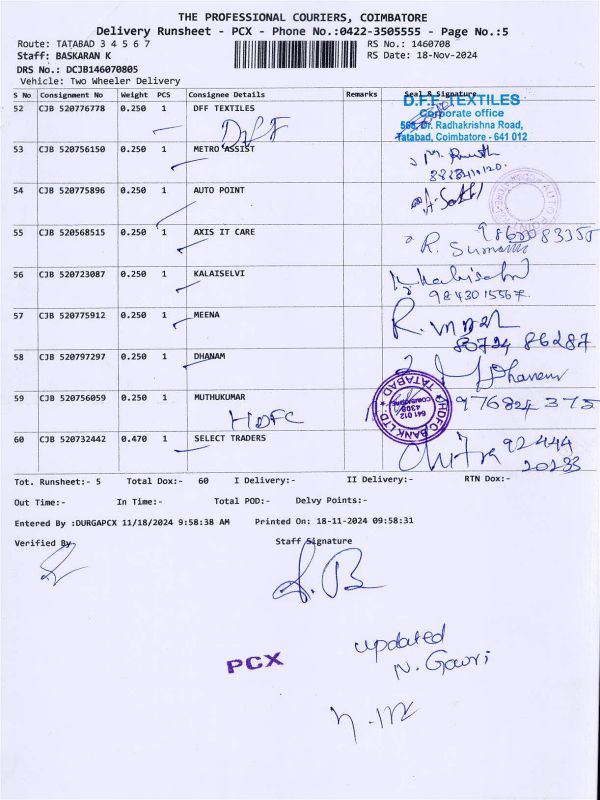 THE PROFESSIONAL COURIERS, COIMBATORE
Delivery Runsheet - PCX - Phone No.:0422-3505555 - Page No.:5
Route: TATABAD 3 4 5 6 7 RS No.: 1460708
Staff: BASKARAN K RS Date: 18-Nov-2024
DRS No.: DCJB146070805
Vehicle: Two Wheeler Delivery
S No Consignment No Weight PCS Consignee Details Remarks Seal & Signature
52 CJB 520776778 0.250 1 DFF TEXTILES
DFF
D.F.F. TEXTILES
Corporate office
Dr. Radhakrishna Road,
Tatabad, Coimbatore - 641 012
53 CJB 520756150 0.250 1 METRO ASSIST
54 CJB 520775896 0.250 1 AUTO POINT
55 CJB 520568515 0.250 1 AXIS IT CARE
56 CJB 520723087 0.250 1 KALAISELVI
9843015567.
57 CJB 520775912 0.250 1 MEENA
58 CJB 520797297 0.250 1 DHANAM
59 CJB 520756059 0.250 1 MUTHUKUMAR
HDFC
HDFC BANK LTD.
TATABAD
COIMBATORE
641 012
60 CJB 520732442 0.470 1 SELECT TRADERS
Chitra 92444
20233
Tot. Runsheet:- 5 Total Dox:- 60 I Delivery:- II Delivery:- RTN Dox:-
Out Time:- In Time:- Total POD:- Delvy Points:-
Entered By :DURGAPCX 11/18/2024 9:58:38 AM Printed On: 18-11-2024 09:58:31
Verified By Staff Signature
updated
PCX
N. Gowri